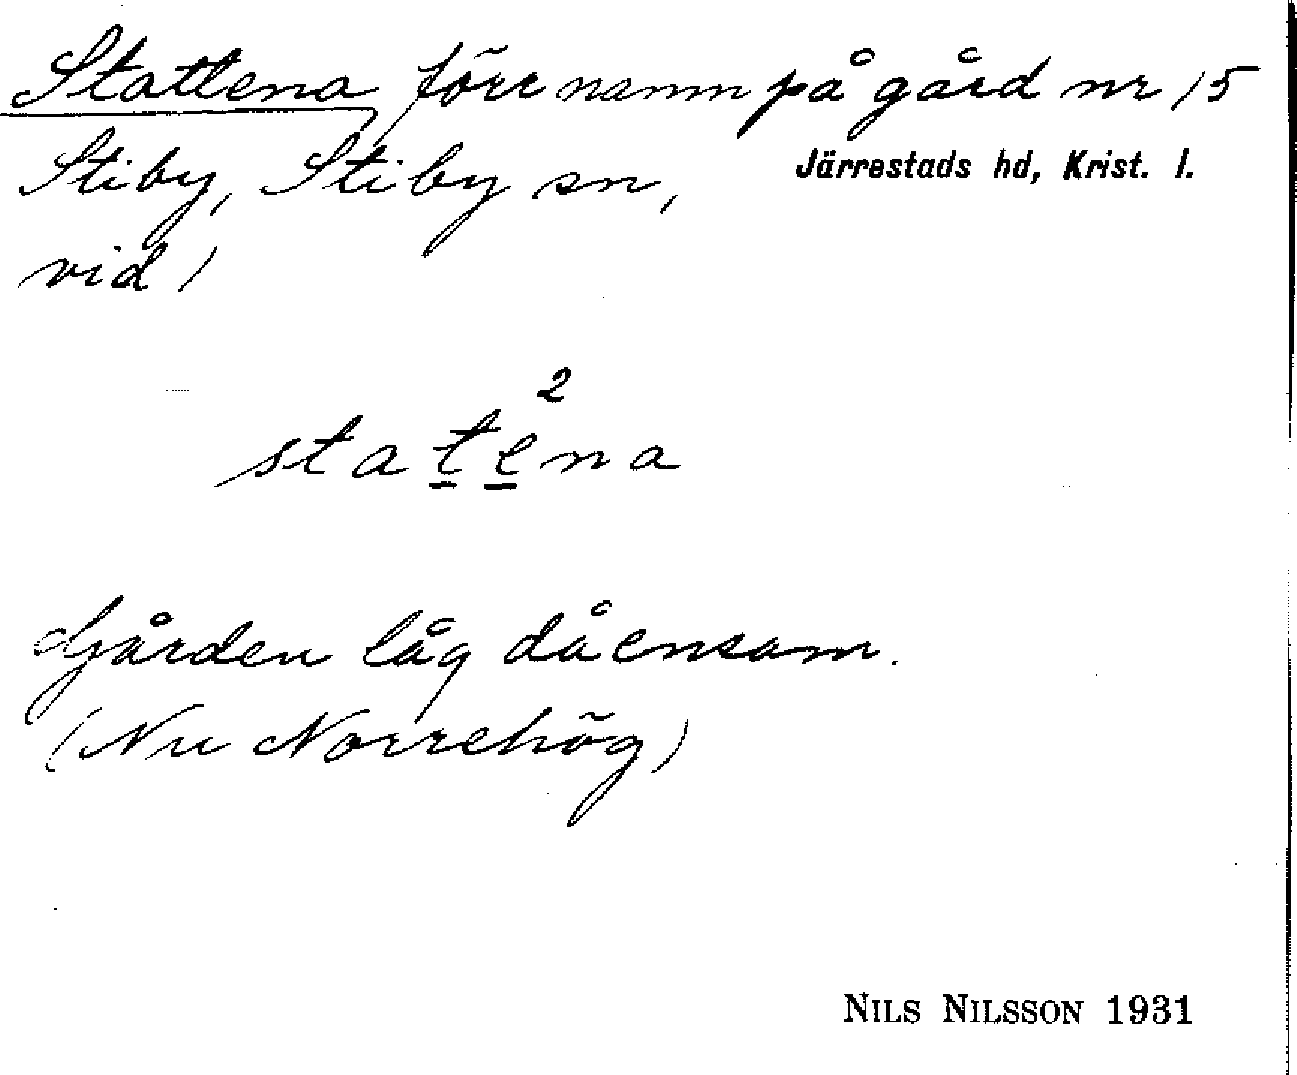 Stattena, förr namn på gård nr 15
Stiby, Stiby sn, Järrestads hd, Krist. l.
vid 1
2
statena
Gården låg då ensam.
(Nu Norrehög)
NILS NILSSON 1931